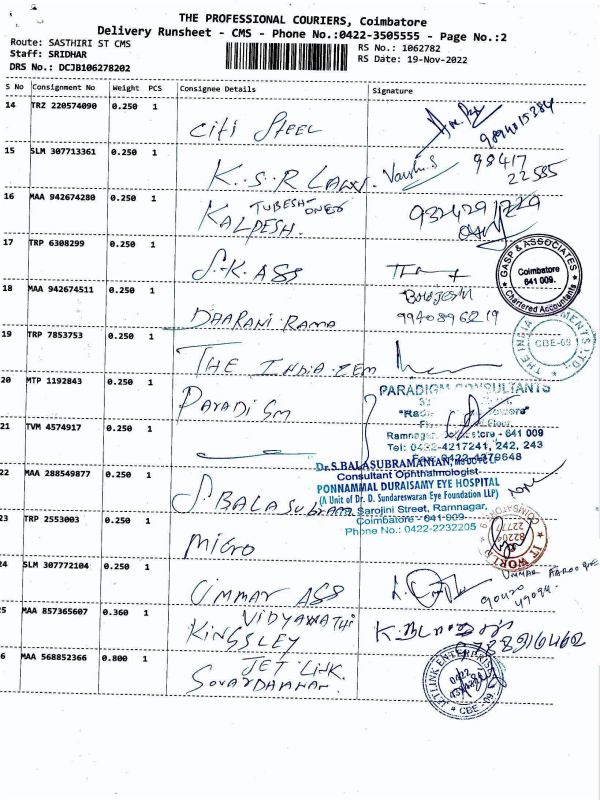 THE PROFESSIONAL COURIERS, Coimbatore
Delivery Runsheet - CMS - Phone No.:0422-3505555 - Page No.:2
Route: SASTHIRI ST CMS
Staff: SRIDHAR
DRS No.: DCJB106278202
RS No.: 1062782
RS Date: 19-Nov-2022
S No Consignment No Weight PCS Consignee Details Signature
14 TRZ 220574090 0.250 1 Citi Steel
15 SLM 307713361 0.250 1 K.S.R Laxmi. 98417 22585
16 MAA 942674280 0.250 1 KALPESH. TUBES
17 TRP 6308299 0.250 1 S.K. ASS
GASP & ASSOCIATES
Coimbatore
641 009.
Chartered Accountants
18 MAA 942674511 0.250 1 DHARANI Rama
9940896219
19 TRP 7853753 0.250 1 THE INDIA CEM
THE INDIA CBE-09
20 MTP 1192843 0.250 1 Paradi Sm
PARADIGM CONSULTANTS
Ramnagar, Coimbatore - 641 009
Tel: 0422-4217241, 242, 243
Fax: 0422-4379648
21 TVM 4574917 0.250 1
22 MAA 288549877 0.250 1 S. BALASubram
Dr.S.BALASUBRAMANIAN,
Consultant Ophthalmologist
PONNAMMAL DURAISAMY EYE HOSPITAL
(A Unit of Dr. D. Sundareswaran Eye Foundation LLP)
Sarojini Street, Ramnagar,
Coimbatore - 641 009
Phone No.: 0422-2232205
23 TRP 2553003 0.250 1 Micro
IT WORLD
24 SLM 307772104 0.250 1 Ummar ASS
25 MAA 857365607 0.360 1 VIDYAWATHI
KINGSLEY
6 MAA 568852366 0.800 1 JET LINK
JETLINK ENTERPRISE
CBE-09